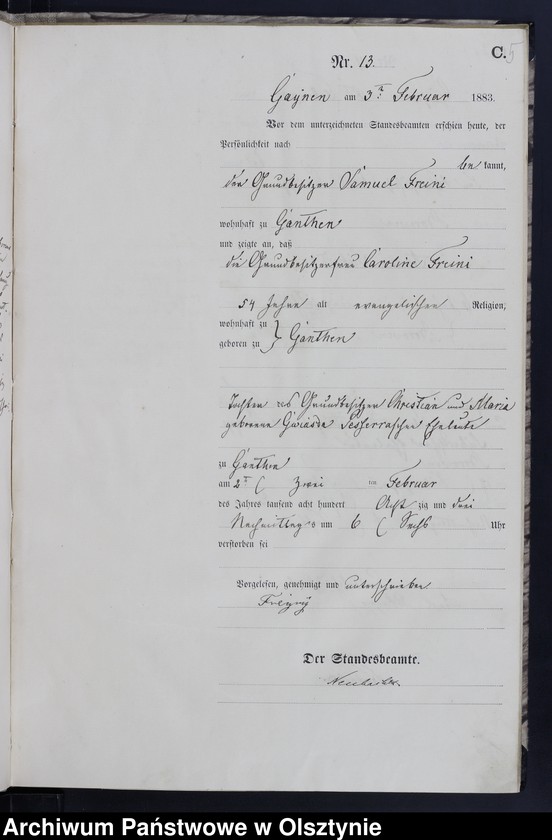 C.
Nr. 13.
am 3ten Februar 1883.
Vor dem unterzeichneten Standesbeamten erschien heute, der
Persönlichkeit nach
be kannt,
der Grundbesitzer Samuel Freini
wohnhaft zu Ganthen
und zeigte an, daß
die Grundbesitzerfrau Caroline Freini
54 Jahre alt evangelischer Religion,
wohnhaft zu
geboren zu } Ganthen
Tochter des Grundbesitzer Christian und Maria
geborene Eheleute
zu Ganthen
am 2ten ( Zwei ten Februar
des Jahres tausend acht hundert Acht zig und drei
Nachmittags um 6 ( Sechs Uhr
verstorben sei
Vorgelesen, genehmigt und unterschrieben
Der Standesbeamte.
Archiwum Państwowe w Olsztynie